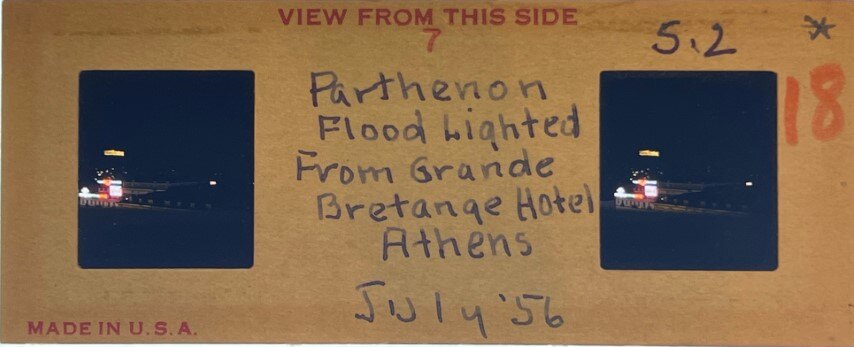 VIEW FROM THIS SIDE
7
5.2 *
18
Parthenon
Flood Lighted
From Grande
Bretange Hotel
Athens
July '56
MADE IN U.S.A.